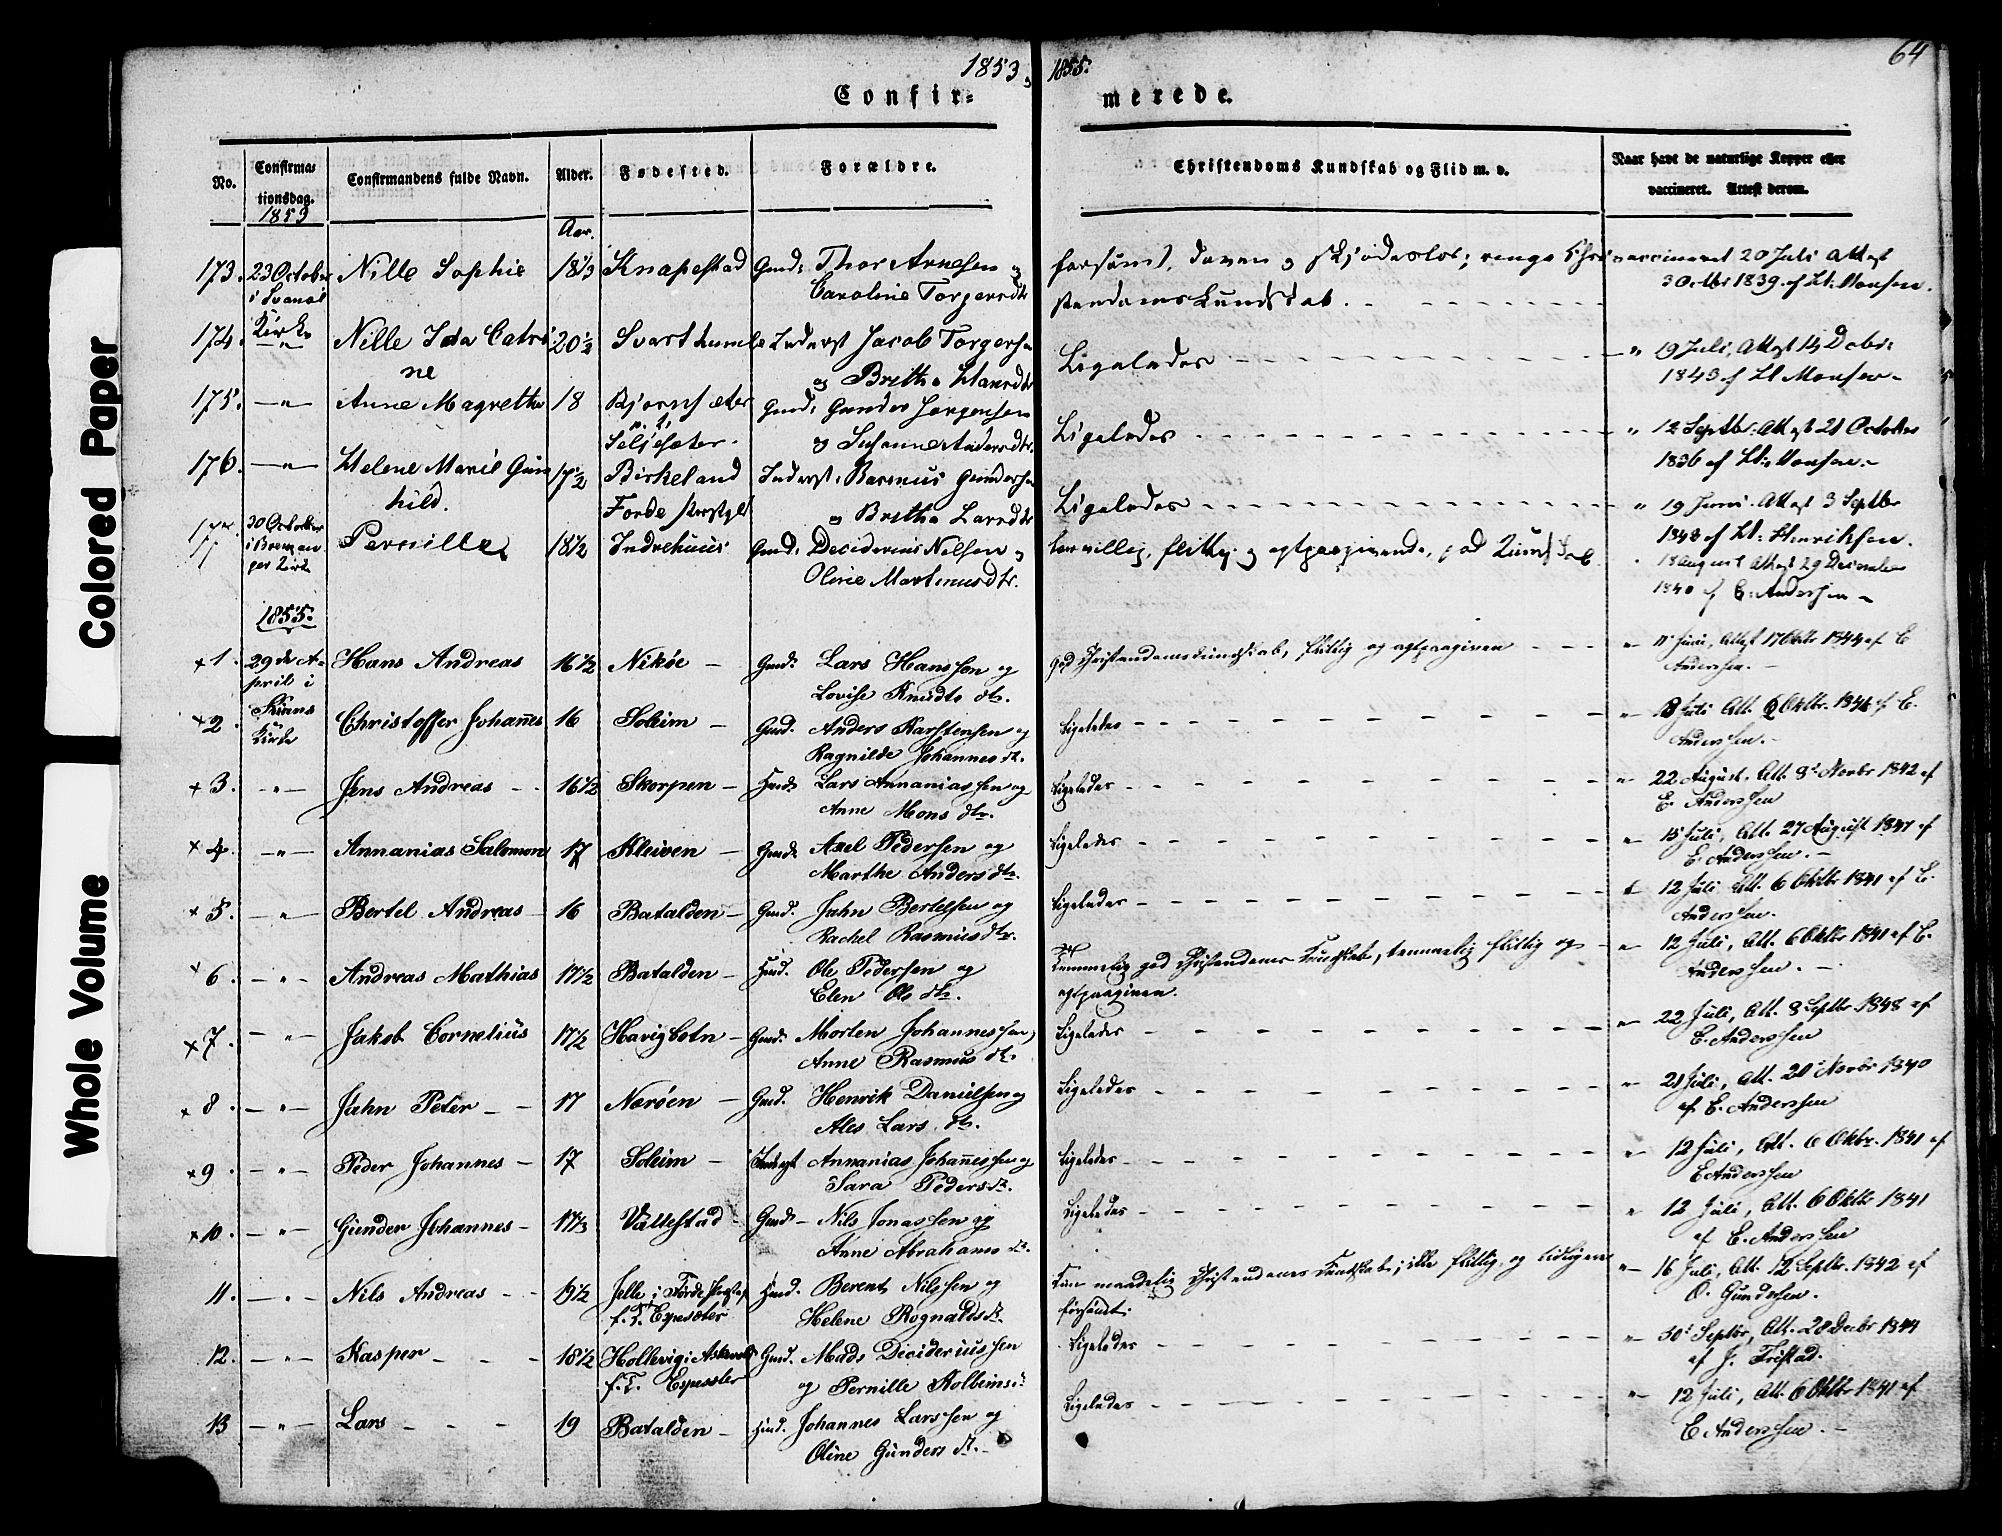 1853,
1855.
64
Confir=
merede.
No.
Confirma=
tionsdag.
1853
Confirmandens fulde Navn.
Alder.
Aar.
Fødested.
Forældre.
Christendoms Kundskab og Flid m. v.
Naar havt de naturlige Kopper eller
vaccineret. Attest derom.
173. 23 October Nille Sophie 18 1/3 Knapestad Gmd: Thor Arnesen og
i Svanøe Caroline Torgersdtr
forsømt, doven og skjødesløs; ringe Chri
stendomskundskab.
vaccineret 20 Juli Attest
3 Octbr 1839 af Lt: Monsen.
Kirke
174. -"- Nille Ida Catri 20 1/2 Svarthumle Inderst Jacob Torgersen
ne og Brithe Hansdtr
Ligeledes
" 19 Juli, Attest 14 Decbr:
1843 af Lt Monsen
175. -"- Anne Magrethe 18 Bjørnsæter Gmd: Gunder Jørgensen
Seljesæter. og Susanne Andersdtr.
Ligeledes
" 12 Septbr: Attest 21 October
1836 af Lt: Monsen.
176. -"- Helene Marie Gun 17 1/2 Birkeland Inderst: Rasmus Gundersen
hild. Førde Prestgl og Brithe Larsdtr
Ligeledes
" 19 Juni Attest 3 Septbr
1848 af Lt: Henriksen.
177 30 October Pernille 18 1/2 Indrehuus Gmd: Deciderius Nilsen og
i Bremanger Kirke Oline Martinusdtr.
lærvillig, flittig og agtpaagivende, god Kundskab
18 August Attest 29 December
1840 af E: Andersen
1855.
+1. 29de A- Hans Andreas 16 1/2 Nikøe Gmd. Lars Hanssen og
pril i Lovise Knudts dtr.
God Christendomskundskab, flittig og agtpaagiven
" 11 Juni, Attest 17 Oktbr 1844 af E
Anderssen.
+2. Kinns Christoffer Johannes 16 Soleim Gmd. Anders Karstensen og
Kirke Ragnilde Johannes dtr.
Ligeledes
" 8 Juli Att. 2 Oktbr. 1846 af E.
Anderssen.
+3. " Jens Andreas 16 1/2 Skorpen Hmd. Lars Annaniassen og
Anne Mons dtr.
Ligeledes
" 22 August, Att. 8de Novbr 1842 af
E. Anderssen
+4. " Annanias Salomon 17 Kleiven Gmd. Axel Pedersen og
Marthe Anders dtr.
Ligeledes
" 15 Juli, Att. 27 August 1847 af
E. Anderssen.
+5. " Bertel Andreas 16 Batalden Gmd. Jahn Bertelsen og
Rachel Rasmus dtr.
Ligeledes
" 12 Juli, Att. 6 Oktbr 1841 af E.
Anderssen.
+6. " Andreas Mathias 17 1/2 Batalden Hmd. Ole Pedersen og
Elen Ole dtr.
Temmelig god Christendoms Kundskab, temmelig flittig og
agtpaagiven.
" 12 Juli, Att. 6 Oktbr 1841 af E.
Anderssen.
+7. " Jakob Cornelius 17 1/2 Havigbotn Gmd. Morten Johannessen,
Anne Rasmus dtr.
Ligeledes
" 22 Juli, Att. 8 Septbr 1848 af
E. Anderssen
+8. " Jahn Peter 17 Nærøen Gmd. Henrik Danielsen og
Ales Lars dtr.
Ligeledes
" 21 Juli, Att. 20 Novbr 1840
af E. Anderssen
+9. " Peder Johannes 17 Soleim Inderst Annanias Johannessen og
Sara Pedersdtr.
Ligeledes
" 12 Juli, Att. 6 Oktbr. 1841 af
E Anderssen
+10. " Gunder Johannes 17 1/3 Vallestad Gmd. Nils Jonassen og
Anne Abrahams dtr.
Ligeledes
" 12 Juli, Att. 6 Oktbr 1841
af E. Anderssen
11. " Nils Andreas 19 1/2 Jelle i Førde Prstgl Hmd. Berent Nilssen og
f. T. Espesæter Helene Rognaldsdtr.
Kun maadelig Christendoms Kundskab; ikke flittig, og tidligere
forsømt.
" 16 Juli, Att. 12 Septbr. 1842 af
O. Gundersen.
12. " Kasper 18 1/2 Hollevig i Askevold Gmd. Mads Decideriussen
f. T. Espesæter og Pernille Kolbeins dtr
Ligeledes
" 30 Septbr, Att. 28 Decbr 1844
af J. Fristad.
13 " Lars 19 Batalden Hmd. Johannes Larssen og
Oline Gunders dtr.
Ligeledes
" 12 Juli, Att. 6 Oktbr 1841 af
E Anderssen.
Colored Paper
Whole Volume